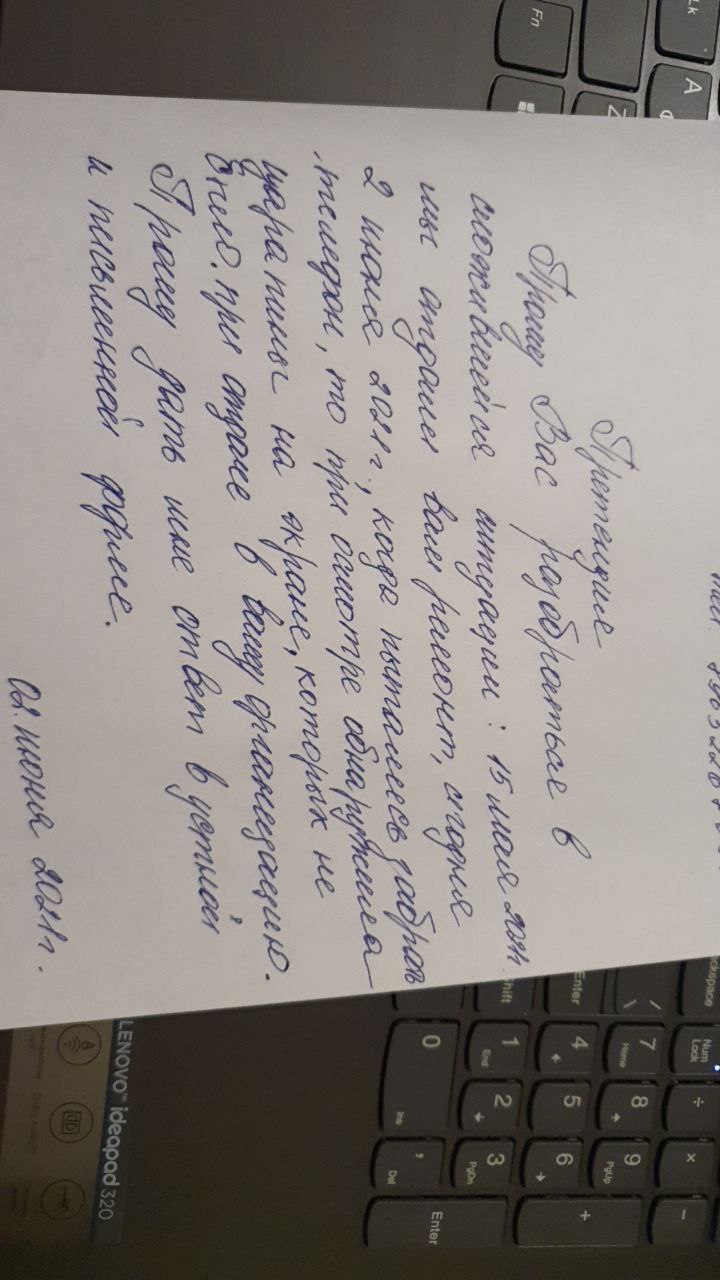 тел.
Претензия
Прошу Вас разобраться в
сложившейся ситуации: 15 мая 2021г.
мы отдали вам ремонт, сегодня
2 июня 2021г., когда пытались забрать
телефон, то при осмотре обнаружила
царапины на экране, которых не
было. при отдаче в вашу организацию.
Прошу дать мне ответ в устной
и письменной форме.
02. июня 2021г.
Lk
A
Fn
Z
ckspace
Enter
Shift
\ /
Num Lock ÷ × −
7 Home 8 9 PgUp +
4 5 6
1 End 2 3 PgDn Enter
0 Ins , Del
LENOVO™ ideapad 320